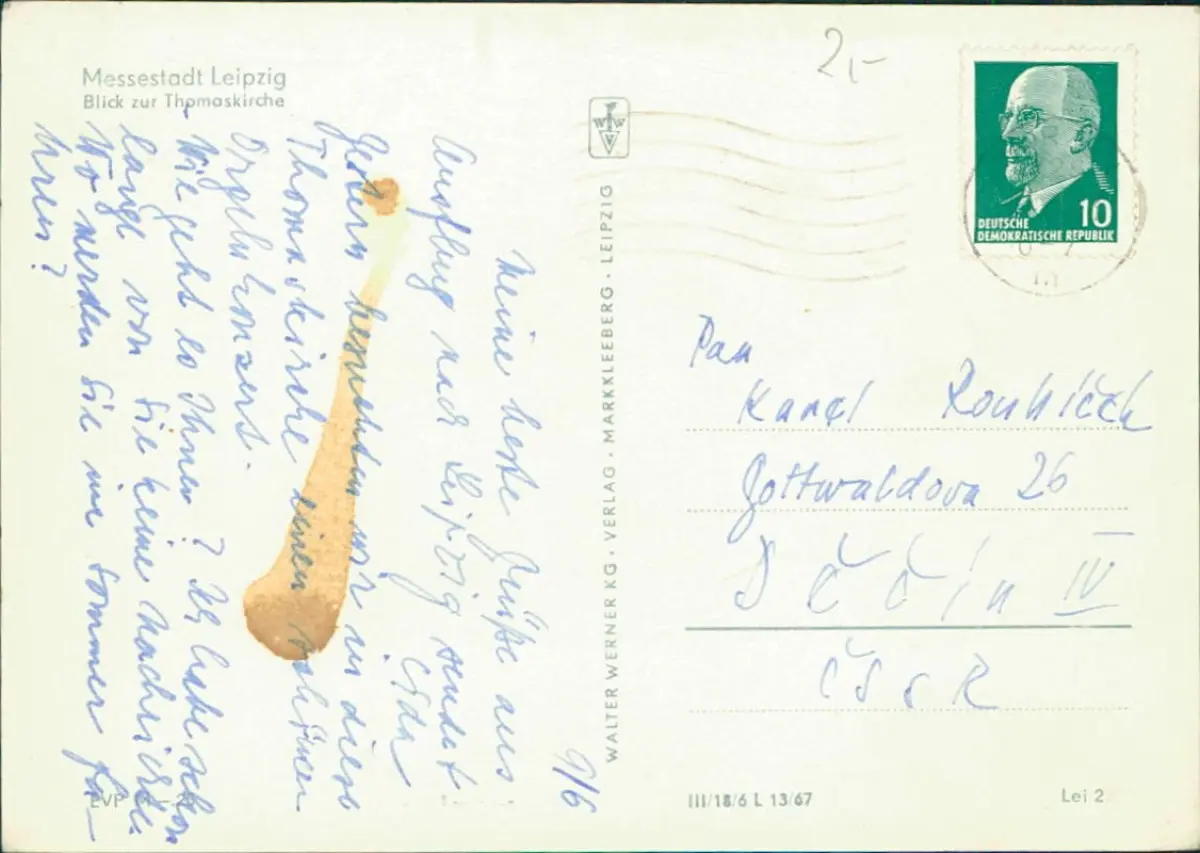 Messestadt Leipzig
Blick zur Thomaskirche
2,-
9/6
Meine beste Grüße aus
Ausflug nach Leipzig sendet
Gestern besuchten wir in diese
Thomaskirche einen schönen
Orgelnkonzert.
Wie geht es Ihnen? Ich habe schon
lange von Sie keine Nachricht.
Wo werden Sie im Sommer fa-
hren?
EVP
WALTER WERNER KG · VERLAG · MARKKLEEBERG · LEIPZIG
WWV
10
DEUTSCHE
DEMOKRATISCHE REPUBLIK
Pan
Karel
Gottwaldova 26
Děčín IV
ČSSR
III/18/6 L 13/67
Lei 2